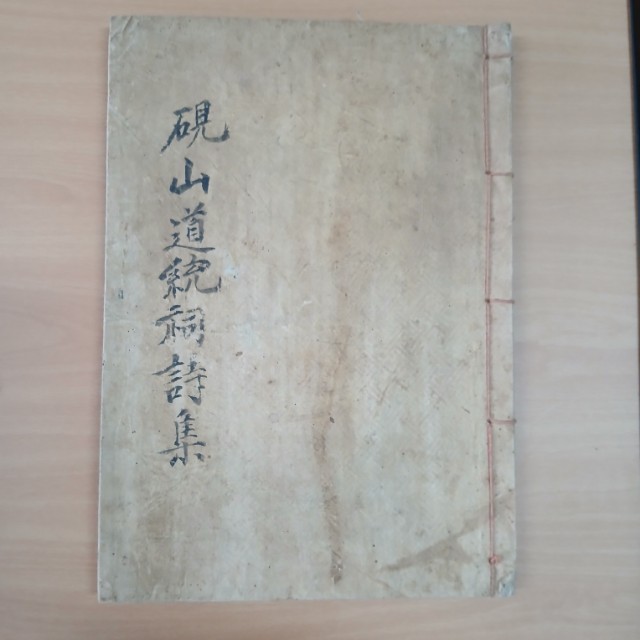 硯山道統祠詩集